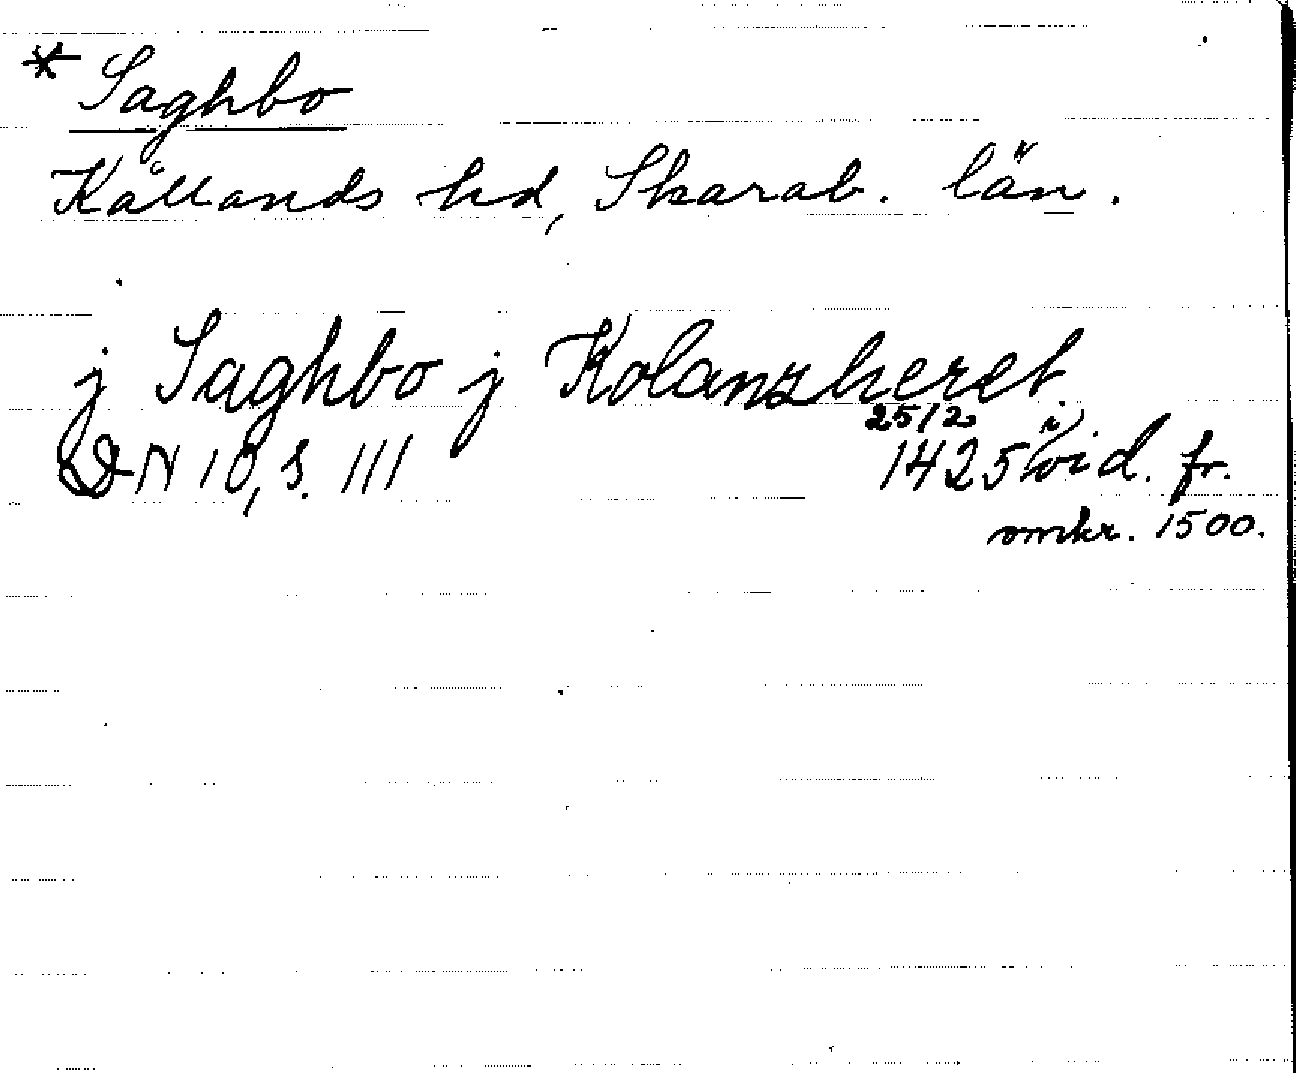 * Saghbo
Kållands hd, Skarab. län.
j Saghbo j Kolanzheret.
DN 10, s. 111 25/2 1425 i vid. fr.
omkr. 1500.